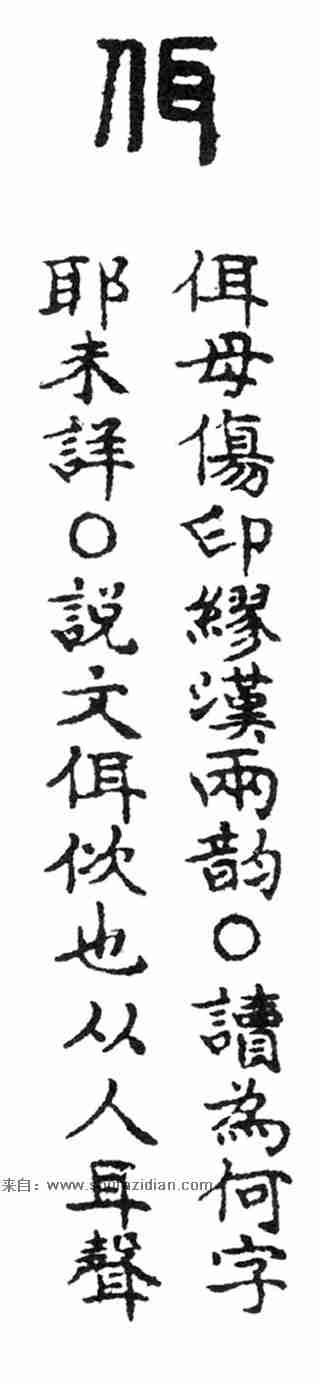 佴
佴母傷印繆漢兩韵○讀為何字
耶未詳○説文佴佽也从人耳聲
来自：www.shufazidian.com